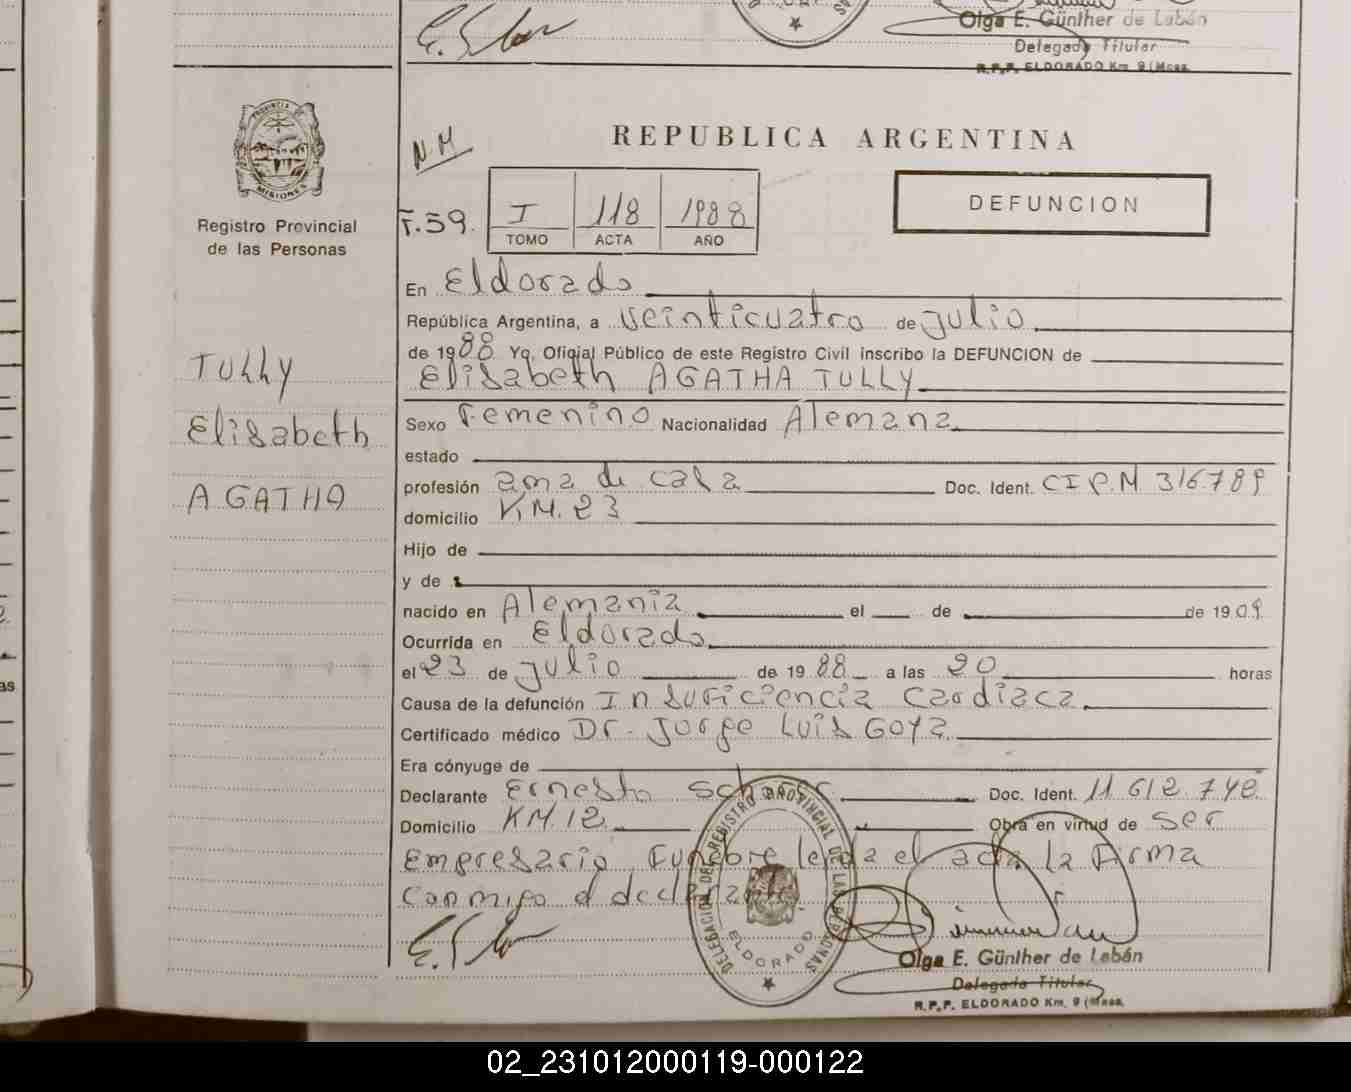 Olga E. Günther de Labán
Delegado Titular
R.P.P. ELDORADO Km. 9 (Mnes.
PROVINCIA DE
MISIONES
Registro Provincial
de las Personas
TULLY
Elisabeth
AGATHA
N M
REPUBLICA ARGENTINA
F. 59.
I 118 1988
TOMO ACTA AÑO
DEFUNCION
En Eldorado
República Argentina, a veinticuatro de julio
de 1988 Yo, Oficial Público de este Registro Civil inscribo la DEFUNCION de
Elisabeth AGATHA TULLY
Sexo Femenino Nacionalidad Alemana
estado
profesión ama de casa Doc. Ident. CIPM 316.789
domicilio KM. 23
Hijo de
y de
nacido en Alemania el de de 1909
Ocurrida en Eldorado
el 23 de julio de 1988 a las 20 horas
Causa de la defunción Insuficiencia Cardiaca
Certificado médico Dr. Jorge Luis Goya
Era cónyuge de
Declarante Ernesto Doc. Ident. 11.612.748
Domicilio KM. 12 Obra en virtud de ser
Empresario Funebre leida el acta la Firma
Conmigo el declarante
DELEGACION DEL REGISTRO PROVINCIAL DE LAS PERSONAS
ELDORADO
Olga E. Günther de Labán
Delegado Titular
R.P.P. ELDORADO Km. 9 (Mnes.
02_231012000119-000122